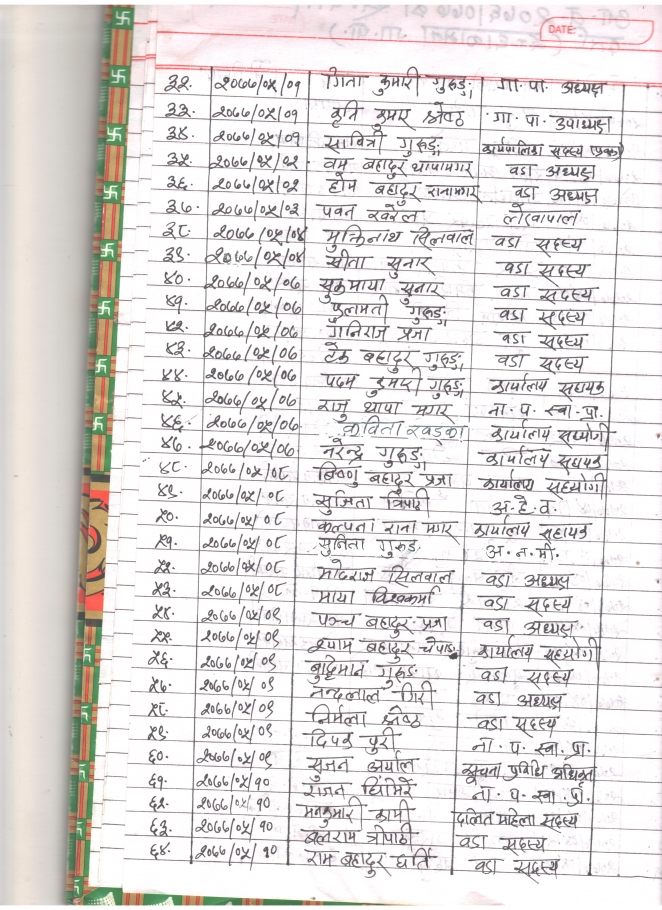 DATE:
३२. २०७७/०५/०१ गिता कुमारी गुरुङ गा. पा. अध्यक्ष
३३. २०७७/०५/०१ कृति कुमार श्रेष्ठ गा. पा. उपाध्यक्ष
३४. २०७७/०५/०१ सावित्री गुरुङ कार्यपालिका सदस्य
३५. २०७७/०५/०२ वम बहादुर थापामगर वडा अध्यक्ष
३६. २०७७/०५/०२ होम बहादुर रानामगर वडा अध्यक्ष
३७. २०७७/०५/०३ पवन खरेल लेखापाल
३८. २०७७/०५/०४ मुक्तिनाथ सिलवाल वडा सदस्य
३९. २०७७/०५/०४ सीता सुनार वडा सदस्य
४०. २०७७/०५/०७ सुकमाया सुनार वडा सदस्य
४१. २०७७/०५/०७ फुलामती गुरुङ वडा सदस्य
४२. २०७७/०५/०७ गनिराज प्रजा वडा सदस्य
४३. २०७७/०५/०७ टेक बहादुर गुरुङ वडा सदस्य
४४. २०७७/०५/०७ पदम कुमारी गुरुङ कार्यालय सहायक
४५. २०७७/०५/०७ राजु थापा मगर ना. प. स्वा. प्रा.
४६. २०७७/०५/०७ कविता खड्का कार्यालय सहयोगी
४७. २०७७/०५/०७ नरेन्द्र गुरुङ कार्यालय सहायक
४८. २०७७/०५/०८ विष्णु बहादुर प्रजा कार्यालय सहयोगी
४९. २०७७/०५/०८ सुजिता त्रिपाठी अ. हे. व.
५०. २०७७/०५/०८ कल्पना राना मगर कार्यालय सहायक
५१. २०७७/०५/०८ सुनिता गुरुङ अ. न. मी.
५२. २०७७/०५/०८ मोदराज सिलवाल वडा अध्यक्ष
५३. २०७७/०५/०८ माया विश्वकर्मा वडा सदस्य
५४. २०७७/०५/०९ पञ्च बहादुर प्रजा वडा अध्यक्ष
५५. २०७७/०५/०९ श्याम बहादुर चेपाङ कार्यालय सहयोगी
५६. २०७७/०५/०९ बुद्धिमान गुरुङ वडा सदस्य
५७. २०७७/०५/०९ नन्दलाल गिरी वडा अध्यक्ष
५८. २०७७/०५/०९ निर्मला श्रेष्ठ वडा सदस्य
५९. २०७७/०५/०९ दिपक पुरी ना. प. स्वा. प्रा.
६०. २०७७/०५/०९ सुजन अर्याल सूचना प्रविधि अधिकृत
६१. २०७७/०५/१० राजन घिमिरे ना. प. स्वा. प्रा.
६२. २०७७/०५/१० मनकुमारी कामी दलित महिला सदस्य
६३. २०७७/०५/१० बलराम त्रीपाठी वडा सदस्य
६४. २०७७/०५/१० राम बहादुर घर्ति वडा सदस्य